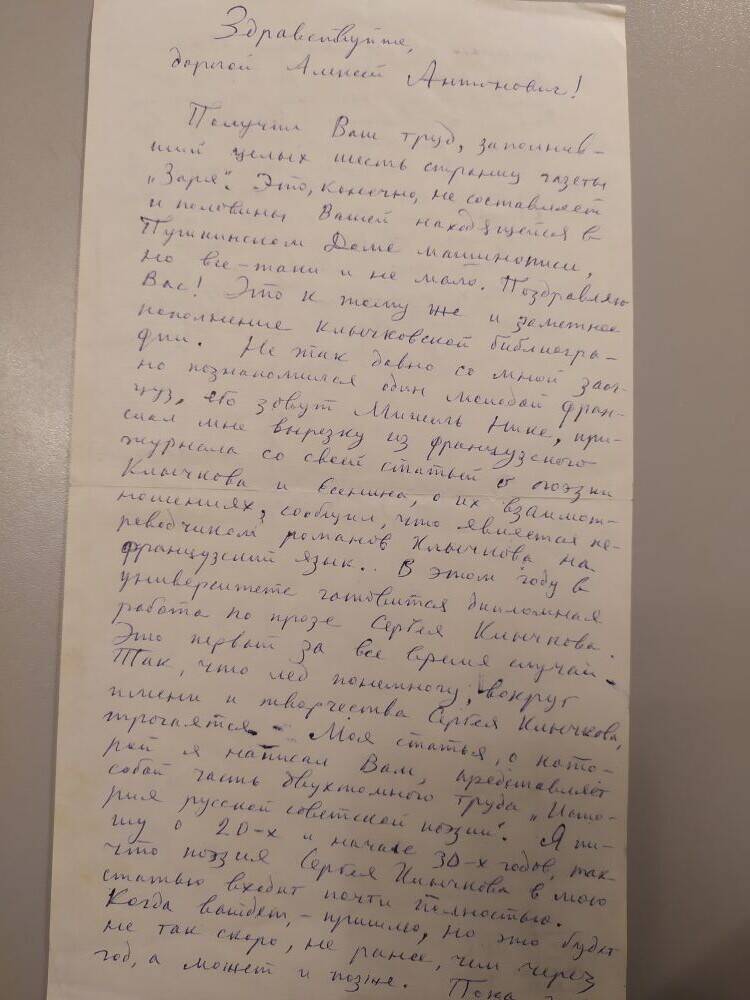 Здравствуйте,
дорогой Алексей Антонович!
Получил Ваш труд, заполнив-
ший целых шесть страниц газеты
„Заря". Это, конечно, не составляет
и половины Вашей находящейся в
Пушкинском Доме машинописи,
но все-таки и не мало. Поздравляю
Вас! Это к тому же и заметное
пополнение клычковской библиогра-
фии. Не так давно со мной заоч-
но познакомился один молодой фран-
цуз, его зовут Мишель Нике, при-
слал мне вырезку из французского
журнала со своей статьей о поэзии
Клычкова и Есенина, о их взаимоот-
ношениях, сообщил, что является пе-
реводчиком романов Клычкова на
французский язык.. В этом году в
университете готовится дипломная
работа по прозе Сергея Клычкова.
Это первый за все время случай.
Так, что лед понемногу, вокруг
имени и творчества Сергея Клычкова,
трогается. Моя статья, о кото-
рой я написал Вам, представляет
собой часть двухтомного труда „Исто-
рия русской советской поэзии". Я пи-
шу о 20-х и начале 30-х годов, так
что поэзия Сергея Клычкова в мою
статью входит почти полностью.
Когда выйдет, – пришлю, но это будет
не так скоро, не ранее, чем через
год, а может и позже. Пока